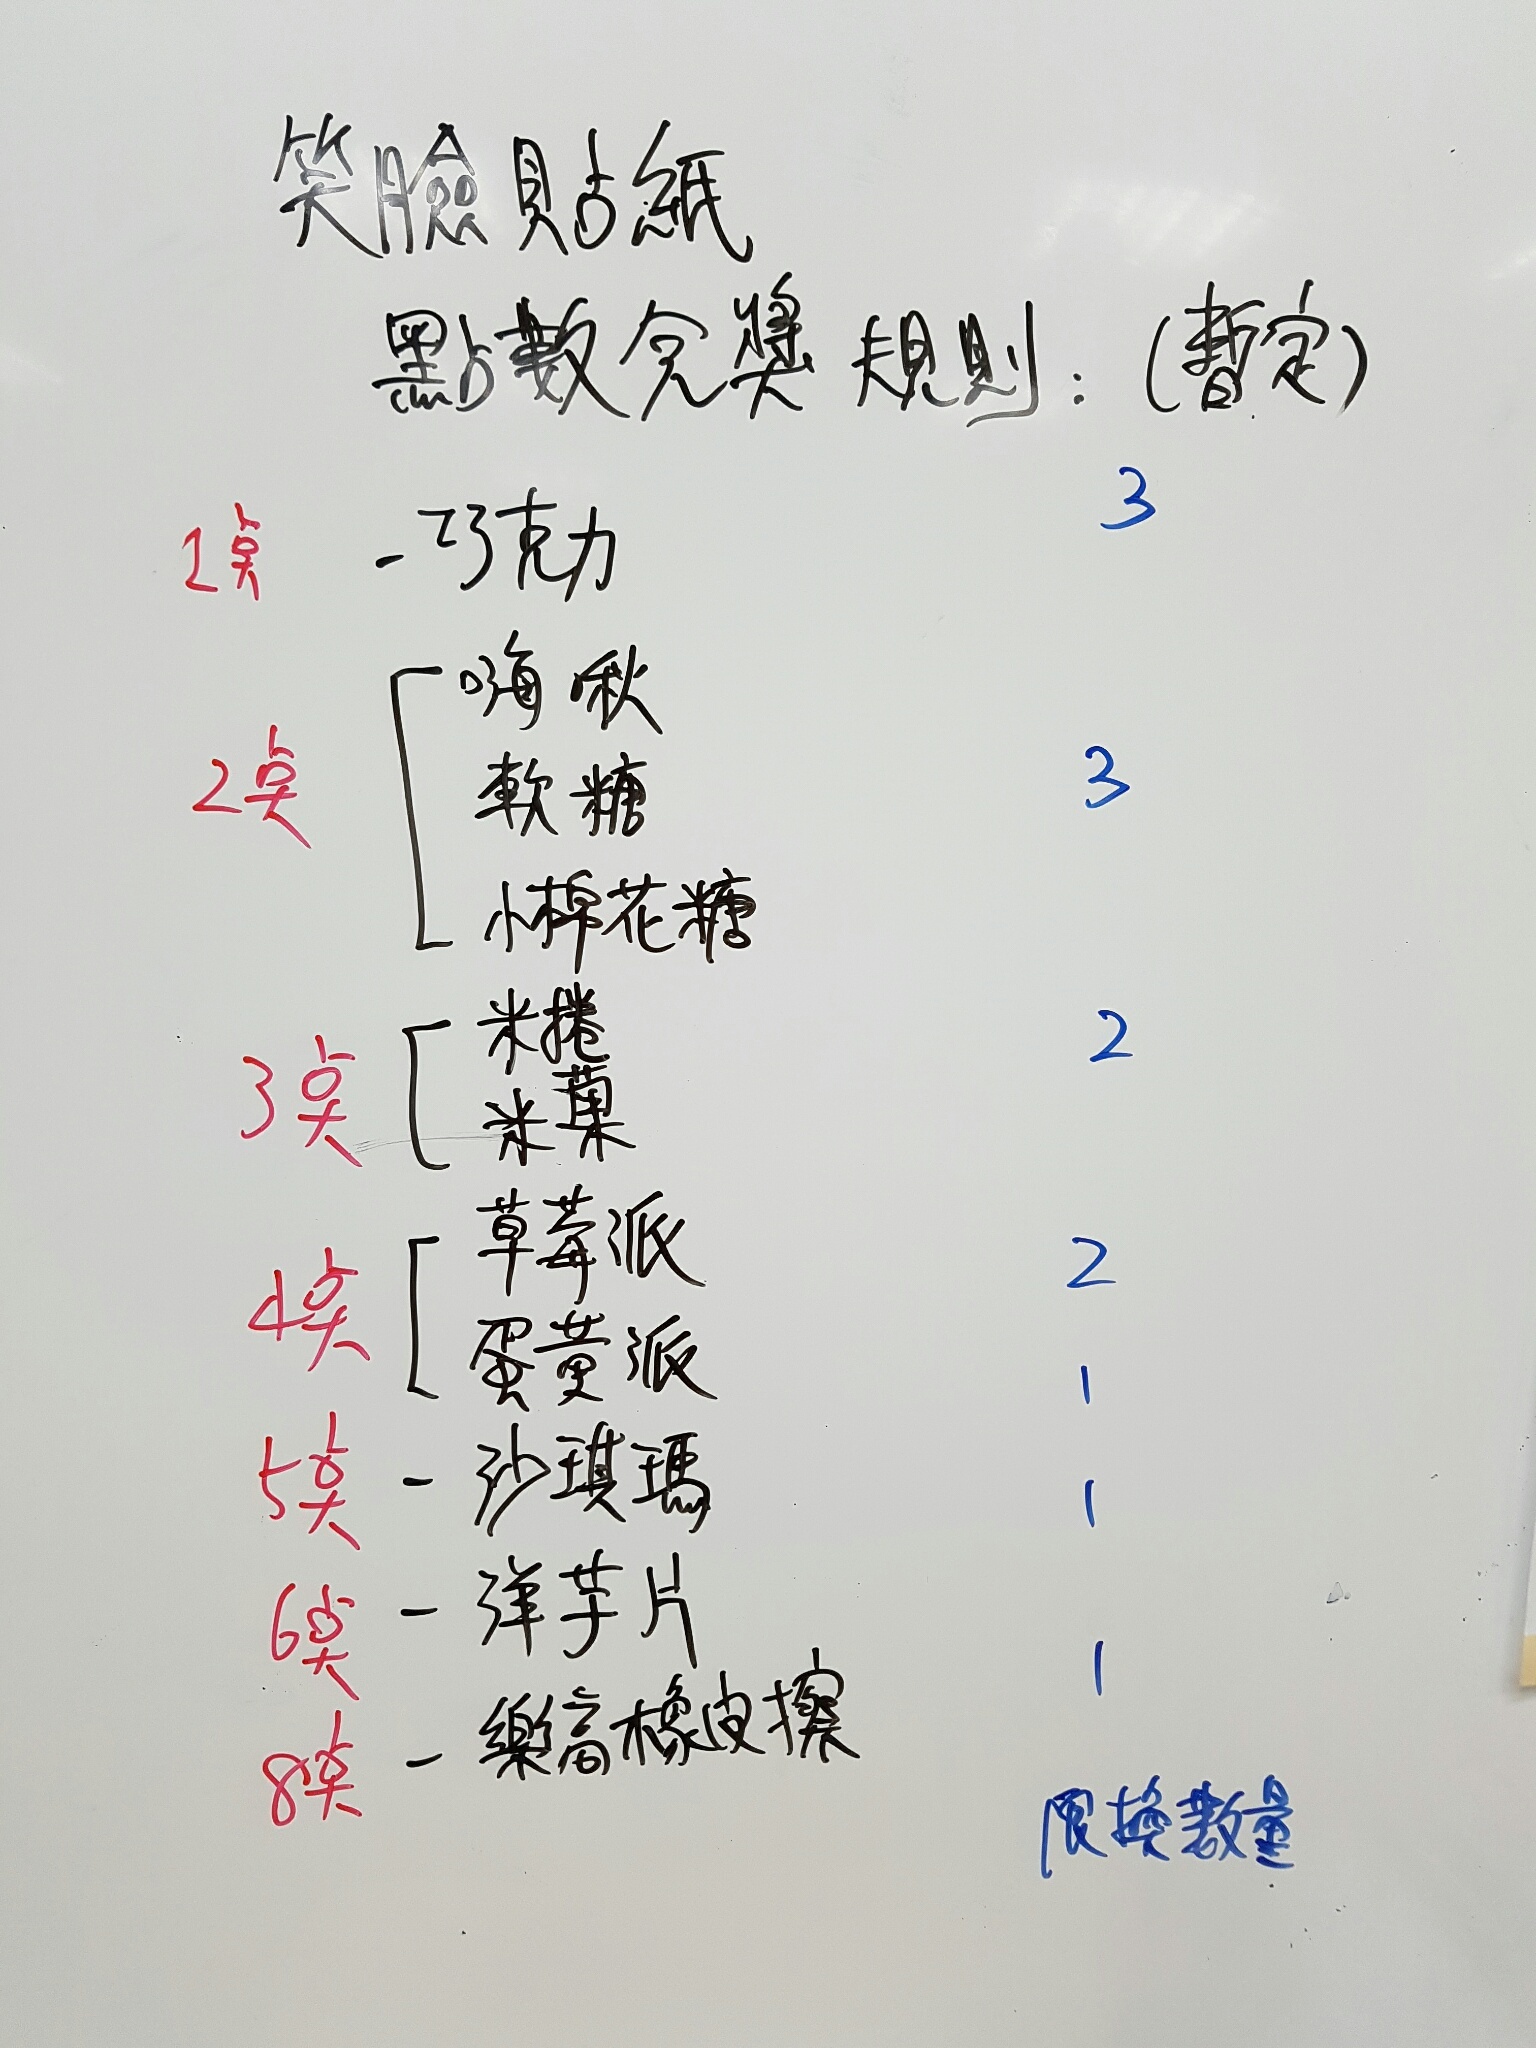 笑臉貼紙
點數兌獎規則:(暫定)
3
1点 - 巧克力
嗨啾
2点 軟糖 3
小棉花糖
米捲 2
3点 米菓
草莓派 2
4点 蛋黄派 1
5点 - 沙琪瑪 1
6点 - 洋芋片 1
8点 - 樂高橡皮擦
限換數量